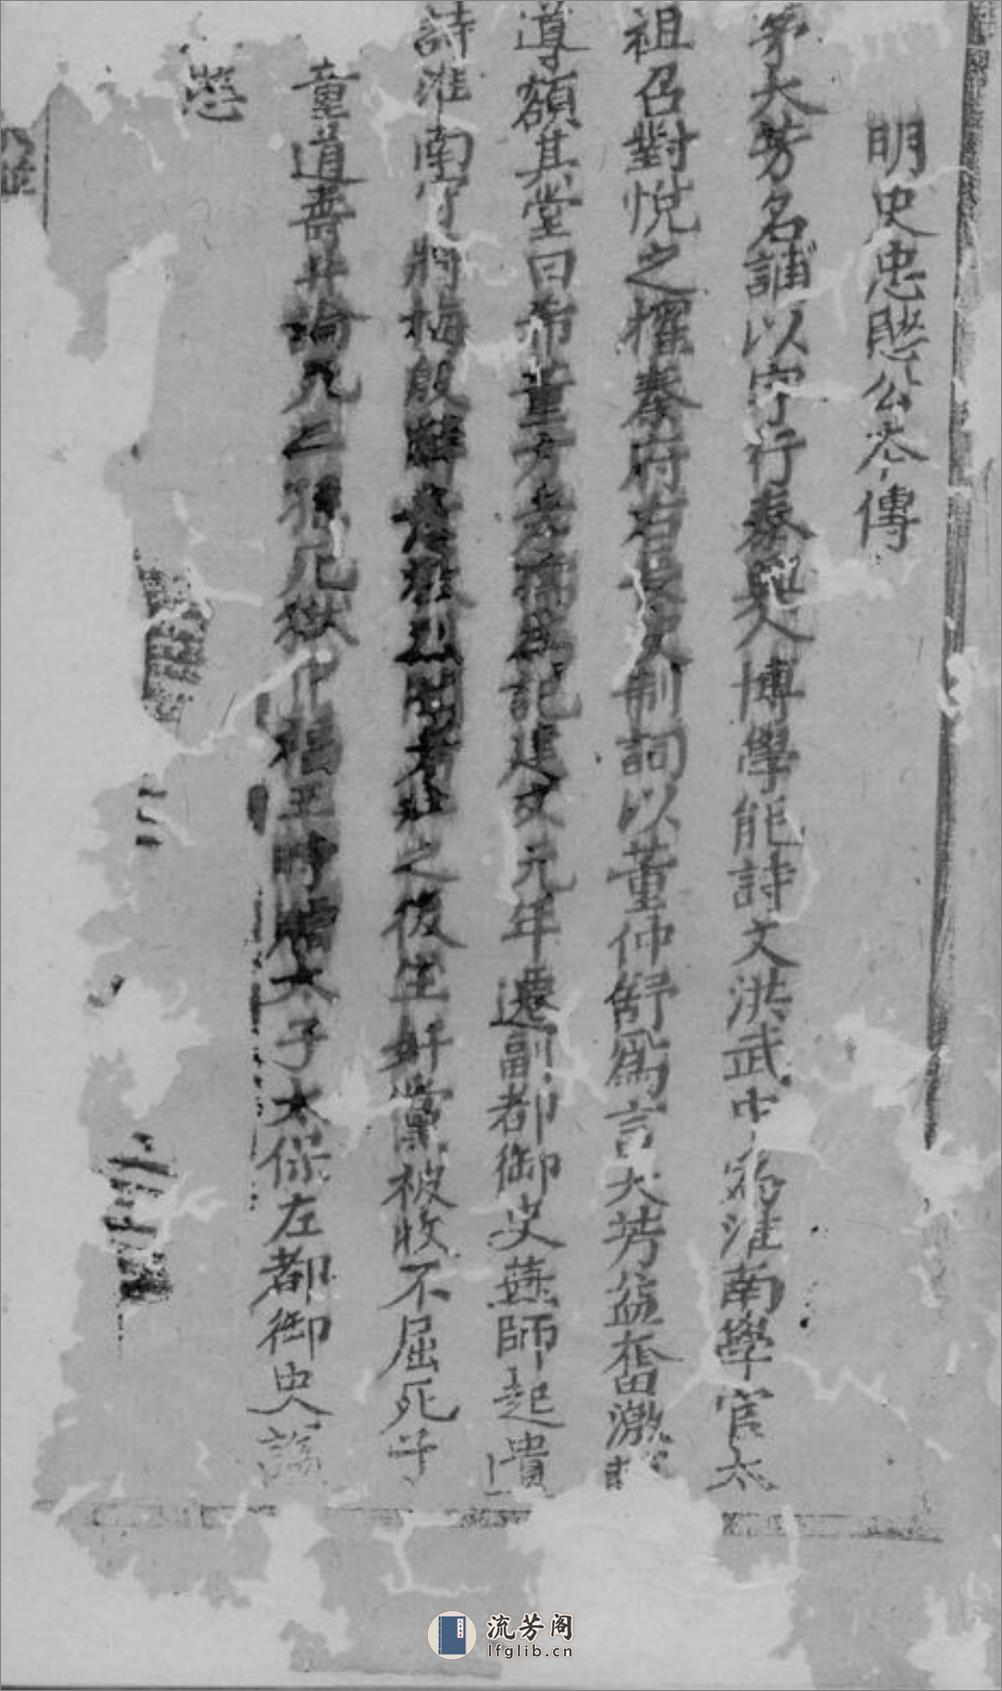 明史忠愍公本傳
茅大芳名誧以字行泰興人博學能詩文洪武中為淮南學官太
祖召對悅之擢秦府右長史制詞以董仲舒爲言大芳益奮激
導額其堂曰希董方孝孺爲記建文元年遷副都御史燕師起遺
詩淮南守將梅殷辭意激烈聞者壯之後坐奸黨被收不屈死子
童道壽并論死二孫死獄中福王時贈太子太保左都御史諡
愍
流芳阁
lfglib.cn